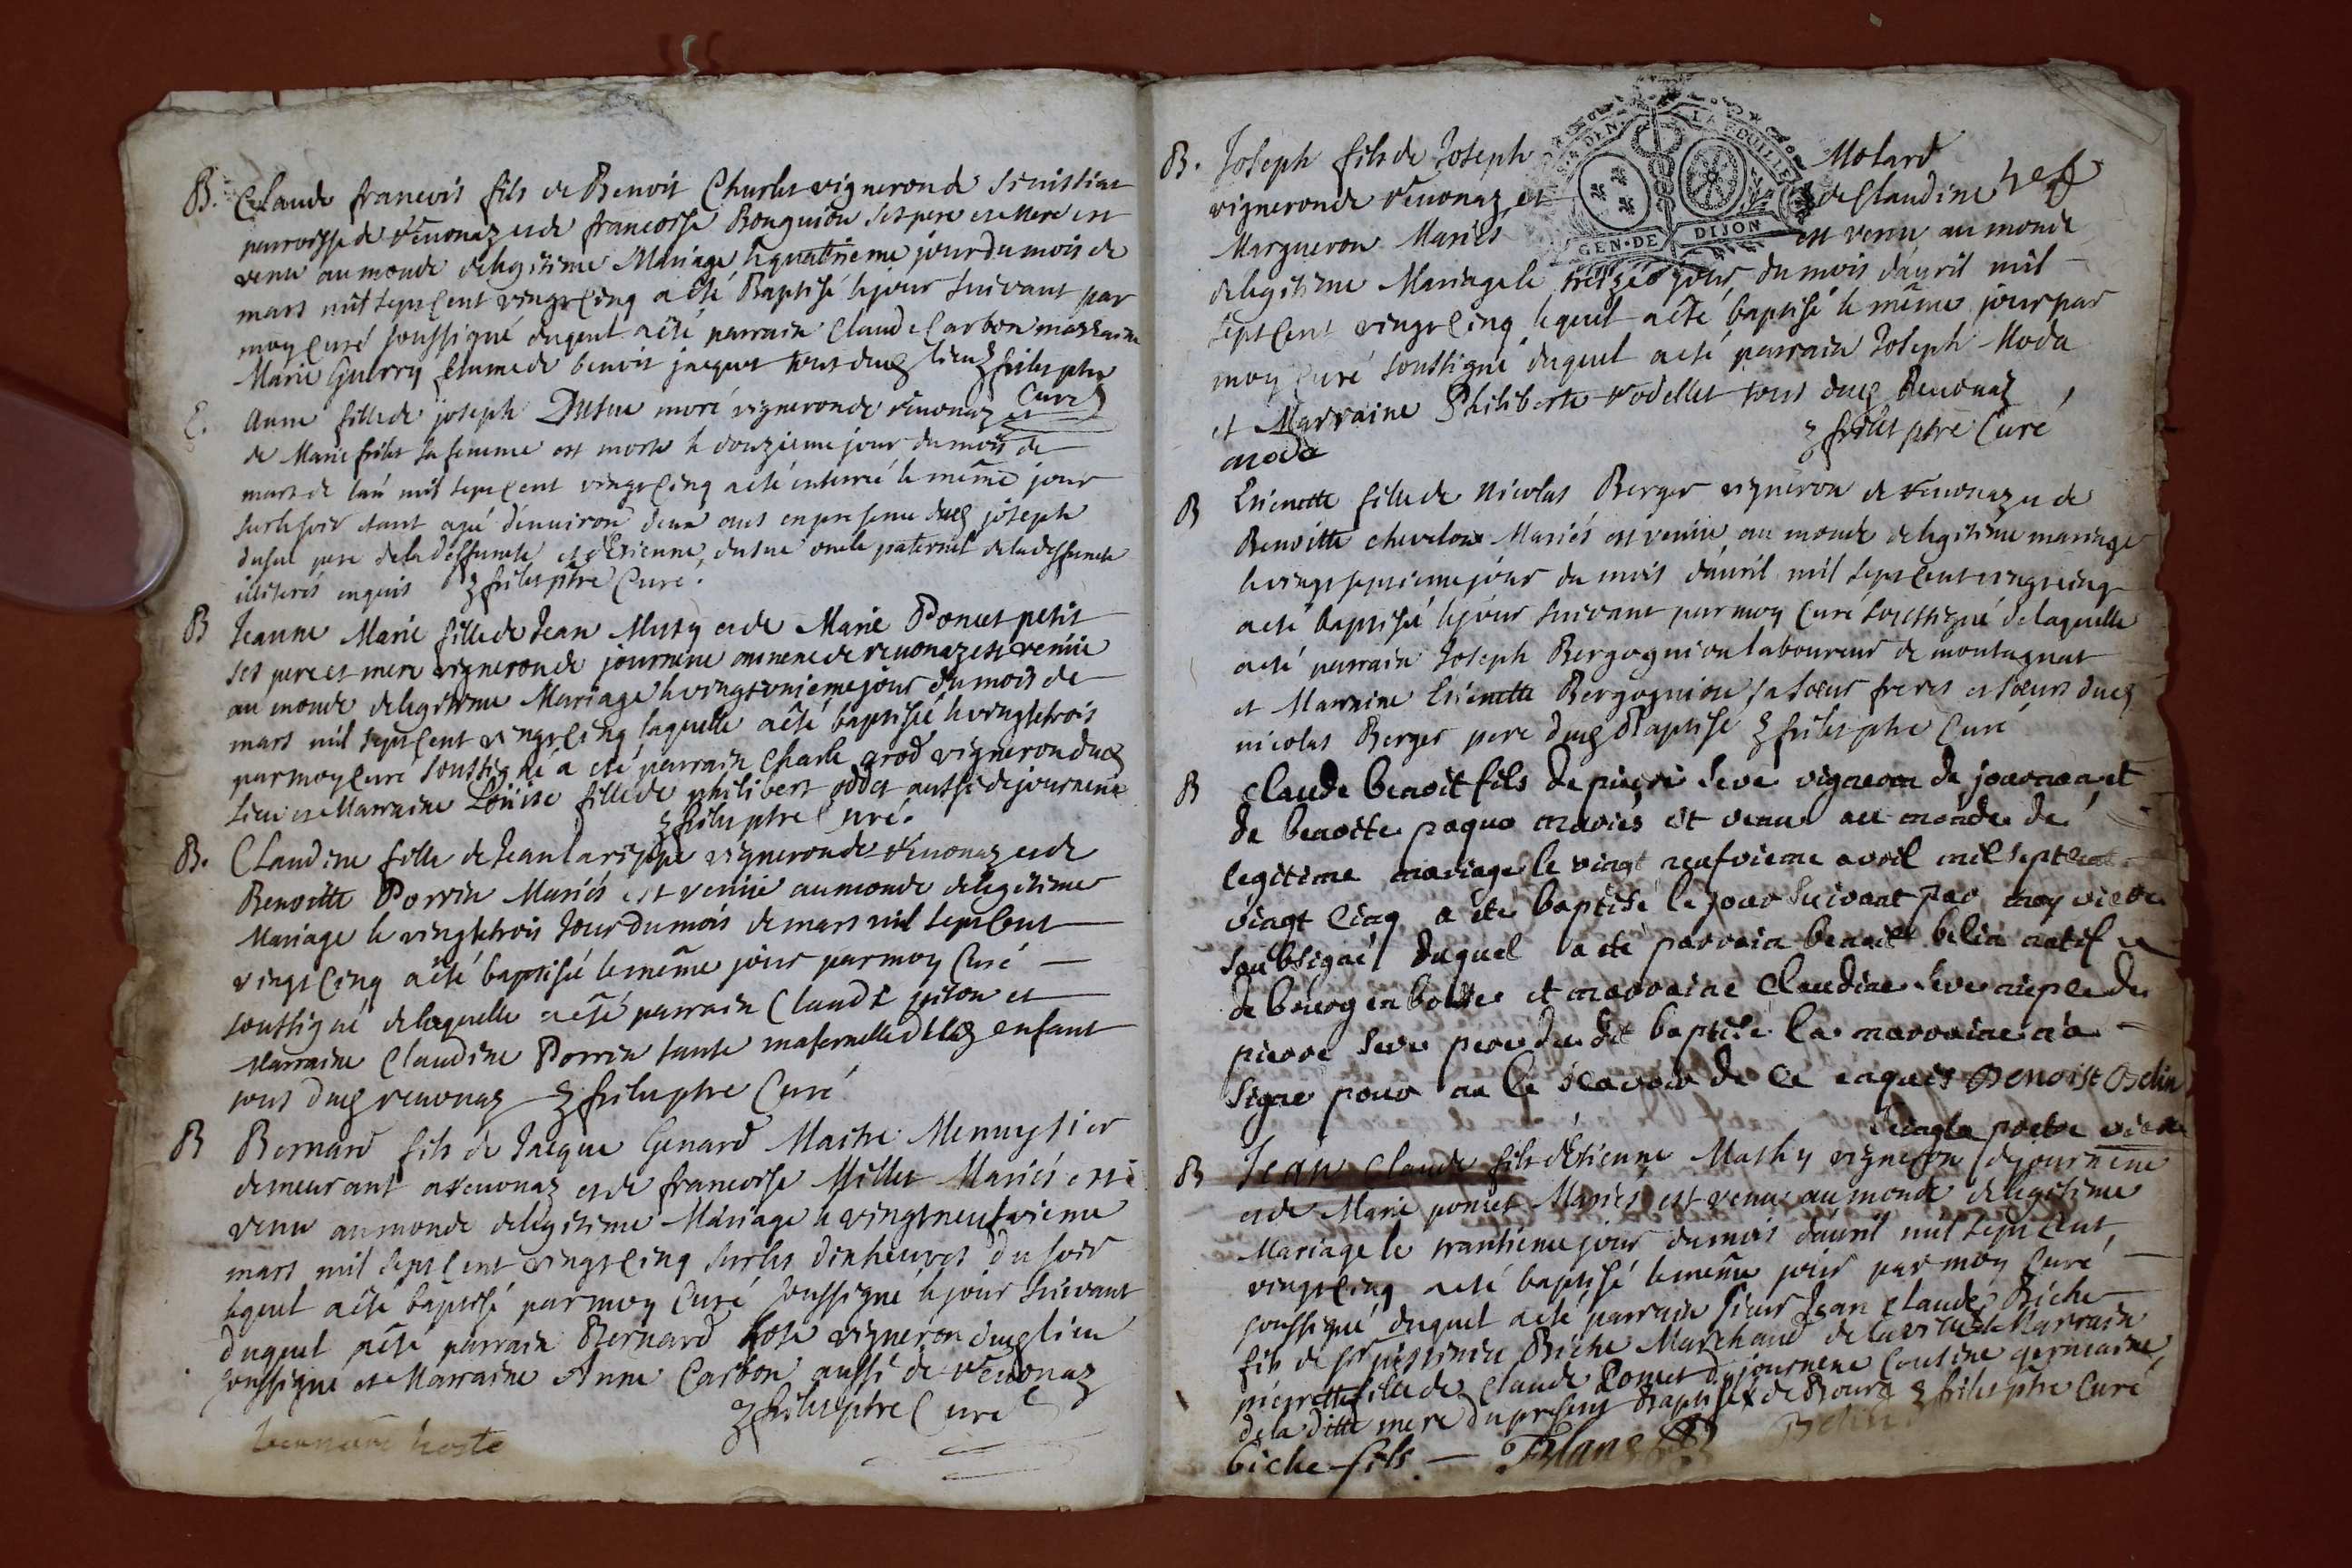 B. Claude francois fils de Benoit Charles vigneron de Senissiat
parroisse de Reuonaz et de francoise Bonguion ses pere et Mere est
venu au monde delegitime Mariage le quatrieme jour du mois de
mars mil sept cent vingt cinq a été Baptisé le jour suivant par
moy curé soussigné duquel a été parrain Claude Carbon marraine
Marie Guerry femme de benoit jacquet tous dud lieu frilet ptre
Curé
E. Anne fille de joseph Dusue mort vigneron de reuonaz et
de Marie frilet sa femme est morte le douzieme jour du mois de
mars de lan mil sept cent vingt cinq a été enterré le même jour
sur le soir étant agé d'enuiron deux ans en presence dud joseph
dusue pere de la deffuncte et d'Etienne dusue oncle paternel de la deffuncte
illiterés enquis frilet ptre Curé.
B Jeanne Marie fille de Jean Musy et de Marie Poncet petit
ses pere et mere vigneron de journene annexe de reuonaz est venüe
au monde delegitime Mariage le vingt unieme jour du mois de
mars mil sept cent vingt cinq laquelle a été baptisée le vingt trois
par moy curé soussigné a été parrain Charle grod vigneron dud
lieu et Marraine Loüise fille de philibert oddet aussi de journene
frilet ptre Curé.
B. Claudine fille de Jean larippe vigneron de Reuonaz et de
Benoitte Porrin Mariés est venüe au monde delegitime
Mariage le vingt trois Jour du mois de mars mil sept cent
vingt cinq a été baptisée le même jour par moy Curé
soussigné de laquelle a été parrain Claude piton et
Marraine Claudine Porrin tante maternelle dud enfant
tous dud reuonaz frilet ptre Curé
B Bernard fils de Jacque Genard Maitre Menuysier
demeurant a reuonaz et de francoise Millet Mariés est
venu au monde delegitime Mariage le vingt neufvieme
mars mil sept cent vingt cinq sur les dix heures du soir
lequel a été baptisé par moy Curé soussigné le jour suivant
duquel a été parrain Bernard hote vigneron dud lieu
soussigné et Marraine Anne Carbon aussi de Reuonaz
frilet ptre Curé
bernard hoste
B. Joseph fils de Joseph Molard
vigneron de Reuonaz et de Claudine
GEN·DE DIJON
Margueron Mariés est venu au monde
delegitime Mariage le treizie jour du mois d'auril mil
sept cent vingt cinq lequel a été baptisé le même jour par
moy Curé soussigné duquel a été parrain Joseph Moda
et Marraine Philiberte vodellet tous dud Reuonaz
frilet ptre Curé
moda
B Etienette fille de Nicolas Berger vigneron de Reuonaz et de
Benoitte chevelou Mariés est venüe au monde delegitime mariage
le vingt septieme jour du mois d'auril mil sept cent vingt cinq
a été baptisée le jour suivant par moy Curé soussigné de laquelle
a été parrain Joseph Bergognion laboureur de montagnat
et Marraine Etienette Bergognion sa soeur freres et soeurs dud
nicolas Berger pere dud Baptisé frilet ptre Curé
B claude benoit fils de pierre seve vigneron de journen et
de benoite paque mariés est venu au monde de
legitime mariage le vingt neufvieme avril mil sept cent
vingt cinq a été baptisé le jour suivant par moy vicere
soubsigné duquel a été parrain benoit belin natif
de bourg en bresse et marraine claudine seve niepce du
pierre seve pere du dit baptisé la marraine n'a
signe pour ne le scavoir de ce enquis Benoist Belin
B Jean claude fils d'Etienne Mathy vigneron de journene
et de Marie poncet Mariés est venu au monde delegitime
Mariage le trantieme jour du mois d'auril mil sept cent
vingt cinq a été baptisé le même jour par moy Curé
soussigné duquel a été parrain sieur Jean claude Biche
fils de sr Biche Marchand de la ville et Marraine
pierrette fille de Claude Poncet de journene Cousine germaine
de la ditte mere du present Baptisé de Bourg frilet ptre Curé
biche fils Blanc Belin